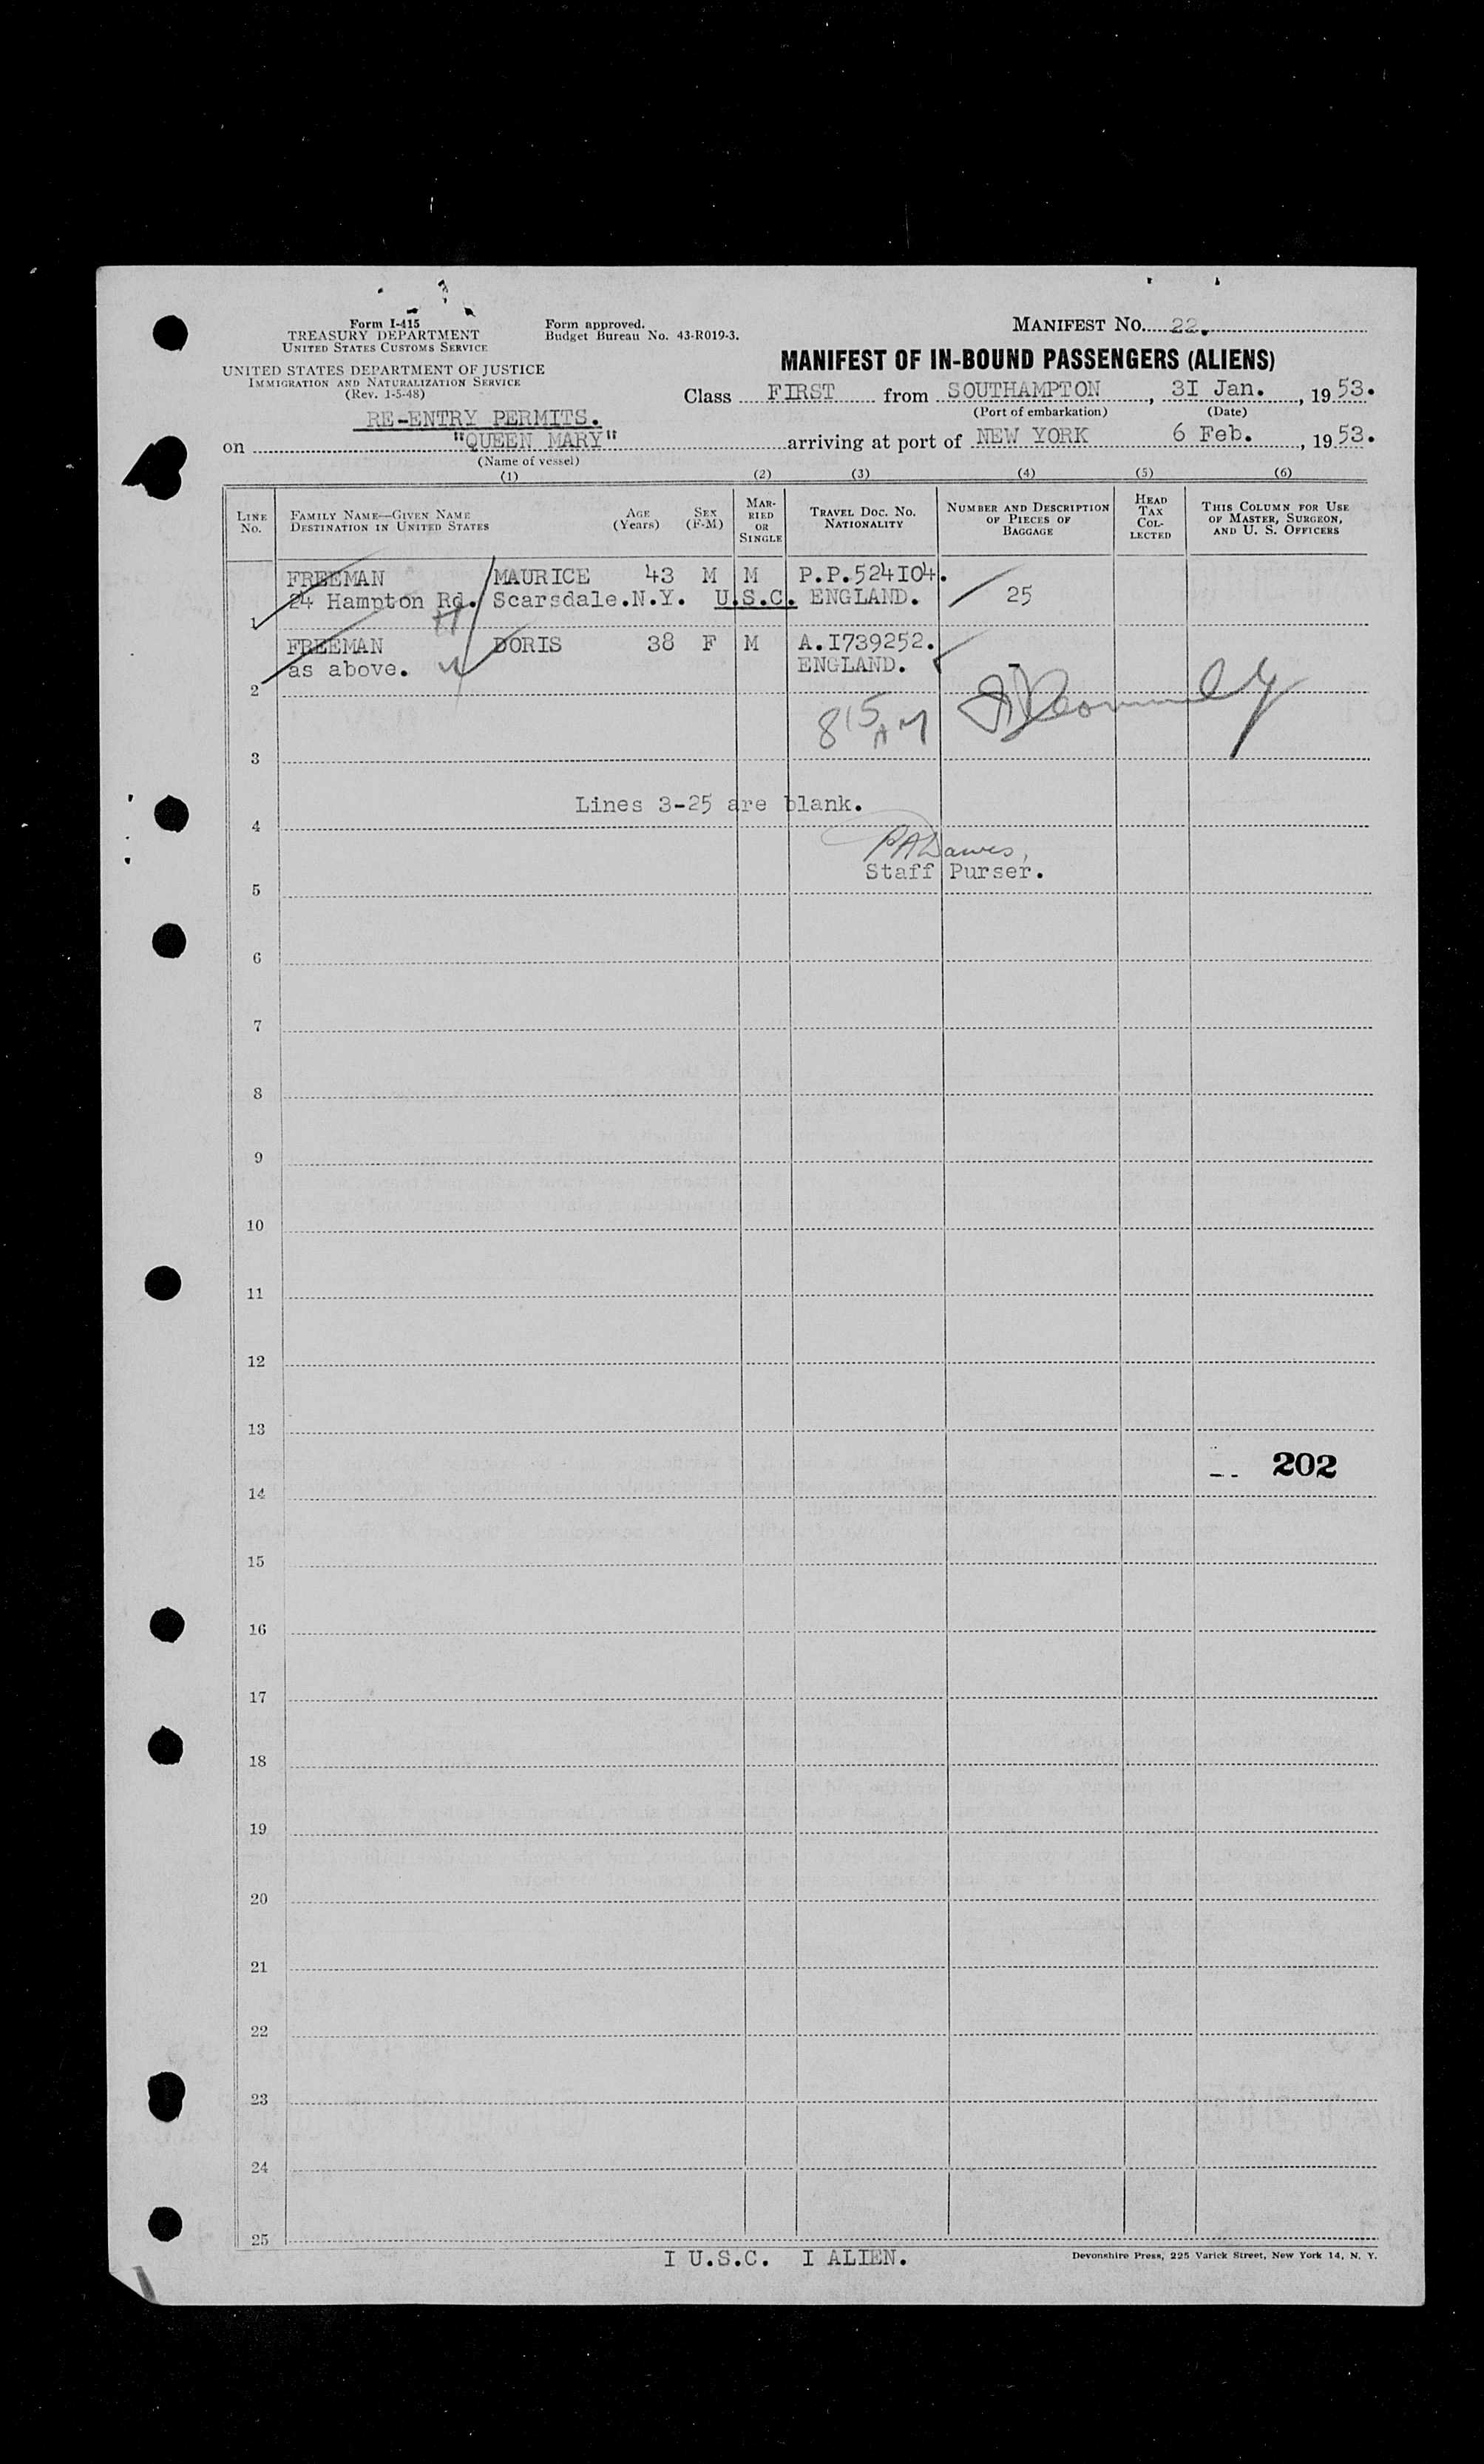 Form I-415
TREASURY DEPARTMENT
UNITED STATES CUSTOMS SERVICE
UNITED STATES DEPARTMENT OF JUSTICE
IMMIGRATION AND NATURALIZATION SERVICE
(Rev. 1-5-48)
Form approved.
Budget Bureau No. 43-R019-3.
MANIFEST NO. 22.
MANIFEST OF IN-BOUND PASSENGERS (ALIENS)
Class FIRST from SOUTHAMPTON, 3I Jan., 1953.
(Port of embarkation) (Date)
RE-ENTRY PERMITS.
on "QUEEN MARY" arriving at port of NEW YORK 6 Feb., 1953.
(Name of vessel)
(1) (2) (3) (4) (5) (6)
LINE NO. FAMILY NAME—GIVEN NAME DESTINATION IN UNITED STATES AGE (Years) SEX (F-M) MARRIED OR SINGLE TRAVEL DOC. NO. NATIONALITY NUMBER AND DESCRIPTION OF PIECES OF BAGGAGE HEAD TAX COLLECTED THIS COLUMN FOR USE OF MASTER, SURGEON, AND U. S. OFFICERS
FREEMAN MAURICE 43 M M P.P.524I04.
24 Hampton Rd. Scarsdale.N.Y. U.S.C. ENGLAND. 25
1
FREEMAN DORIS 38 F M A.I739252.
as above. ENGLAND. -
2
815 AM
3
Lines 3-25 are blank.
4
PADawes,
Staff Purser.
5
6
7
8
9
10
11
12
13
202
14
15
16
17
18
19
20
21
22
23
24
25
I U.S.C. I ALIEN.
Devonshire Press, 225 Varick Street, New York 14, N. Y.